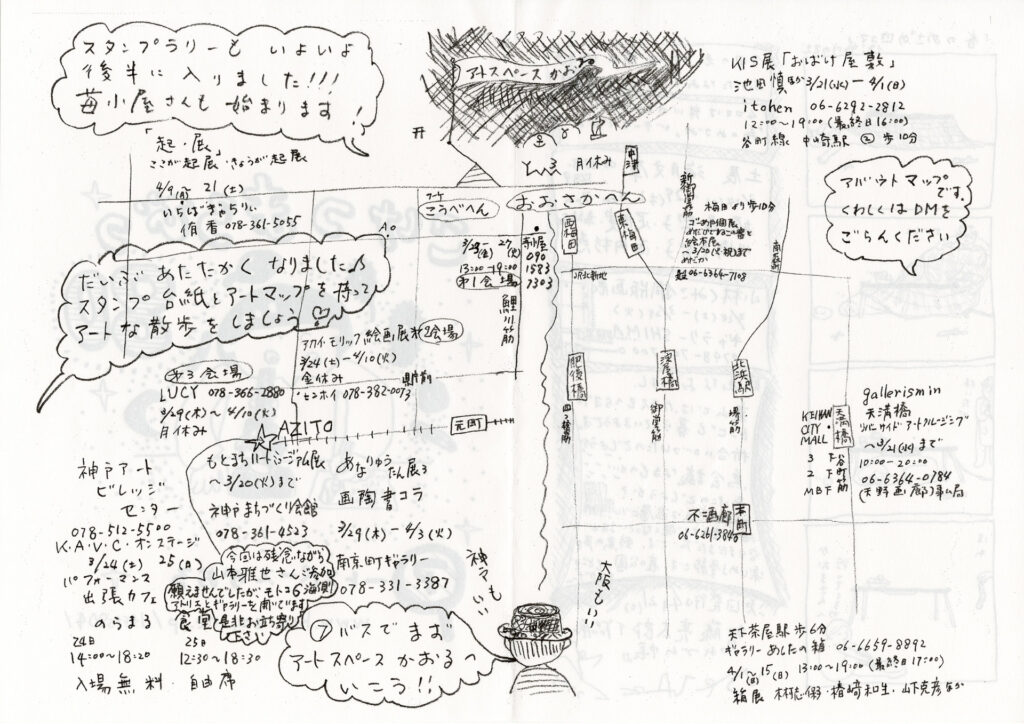 スタンプラリーも いよいよ
後半に入りました!!!
苺小屋さんも 始まります!
アートスペースかおる
KIS展「おばけ屋敷」
池田慎ほか 3/21(水) ー 4/1(日)
itohen 06-6292-2812
12:00〜19:00 (最終日16:00)
谷町線 中崎町駅 ② 歩10分
「起・展」
ここが起展・きょうが起展
4/9(月) 〜 21(土)
いちばぎゃらりぃ
侑香 078-361-5055
月休み
中津
こうべへん
おおさかへん
西梅田
東梅田
新御堂筋
梅田より歩10分
〜3/20(火・祝)まで
06-6364-7108
アバウトマップ
です。
くわしくはDMを
ごらんください
だいぶ あたたかく なりました♪
スタンプ台紙とアートマップを持って
アートな散歩をしましょう
13:00ー19:00
第1会場
090
1583
7303
鯉川筋
JR北新地
アカイ・モリック絵画展 第2会場
3/24(土)ー4/10(火)
金休み
・センホイ 078-382-0073
県庁前
第3会場
LUCY 078-366-2880
3/29(木)〜 4/10(火)
月休み
肥後橋
四つ橋筋
淀屋橋
御堂筋
北浜駅
堺筋
AZITO
元町
もとまちハートミュージアム展
〜3/20(火)まで
神戸まちづくり会館
078-361-4523
あなりゅうたん展3
画陶書コラ
3/29(木) ー 4/3(火)
南京町ギャラリー
078-331-3387
gallerismin
天満橋
リバーサイド アートクルージング
〜3/21(水)まで
10:00ー20:00
06-6364-0784
(天野画廊)事ム局
KEIHAN
CITY
MALL
天満橋
3 F
2 F
MBF
谷町筋
神戸アート
ビレッジ
センター
078-512-5500
K.A.V.C・オンステージ
3/24(土) 25(日)
パフォーマンス
出張カフェ
のらまる 食堂
24日
14:00〜18:20
25日
12:30〜18:30
入場無料・自由席
今回は残念ながら
山本雅也さんご参加
願えませんでしたが モトコー6 海側
アトリエとギャラリーを開いています
是非お立ち寄り
下さい
不二画廊
06-6261-3848
本町
神戸もいい
大阪もいい
⑦バスで まず
アートスペース かおる へ
いこう!!
天下茶屋駅 歩6分
ギャラリー あしたの箱 06-6659-8892
4/1(日)ー15(日) 13:00〜19:00 (最終日17:00)
箱展